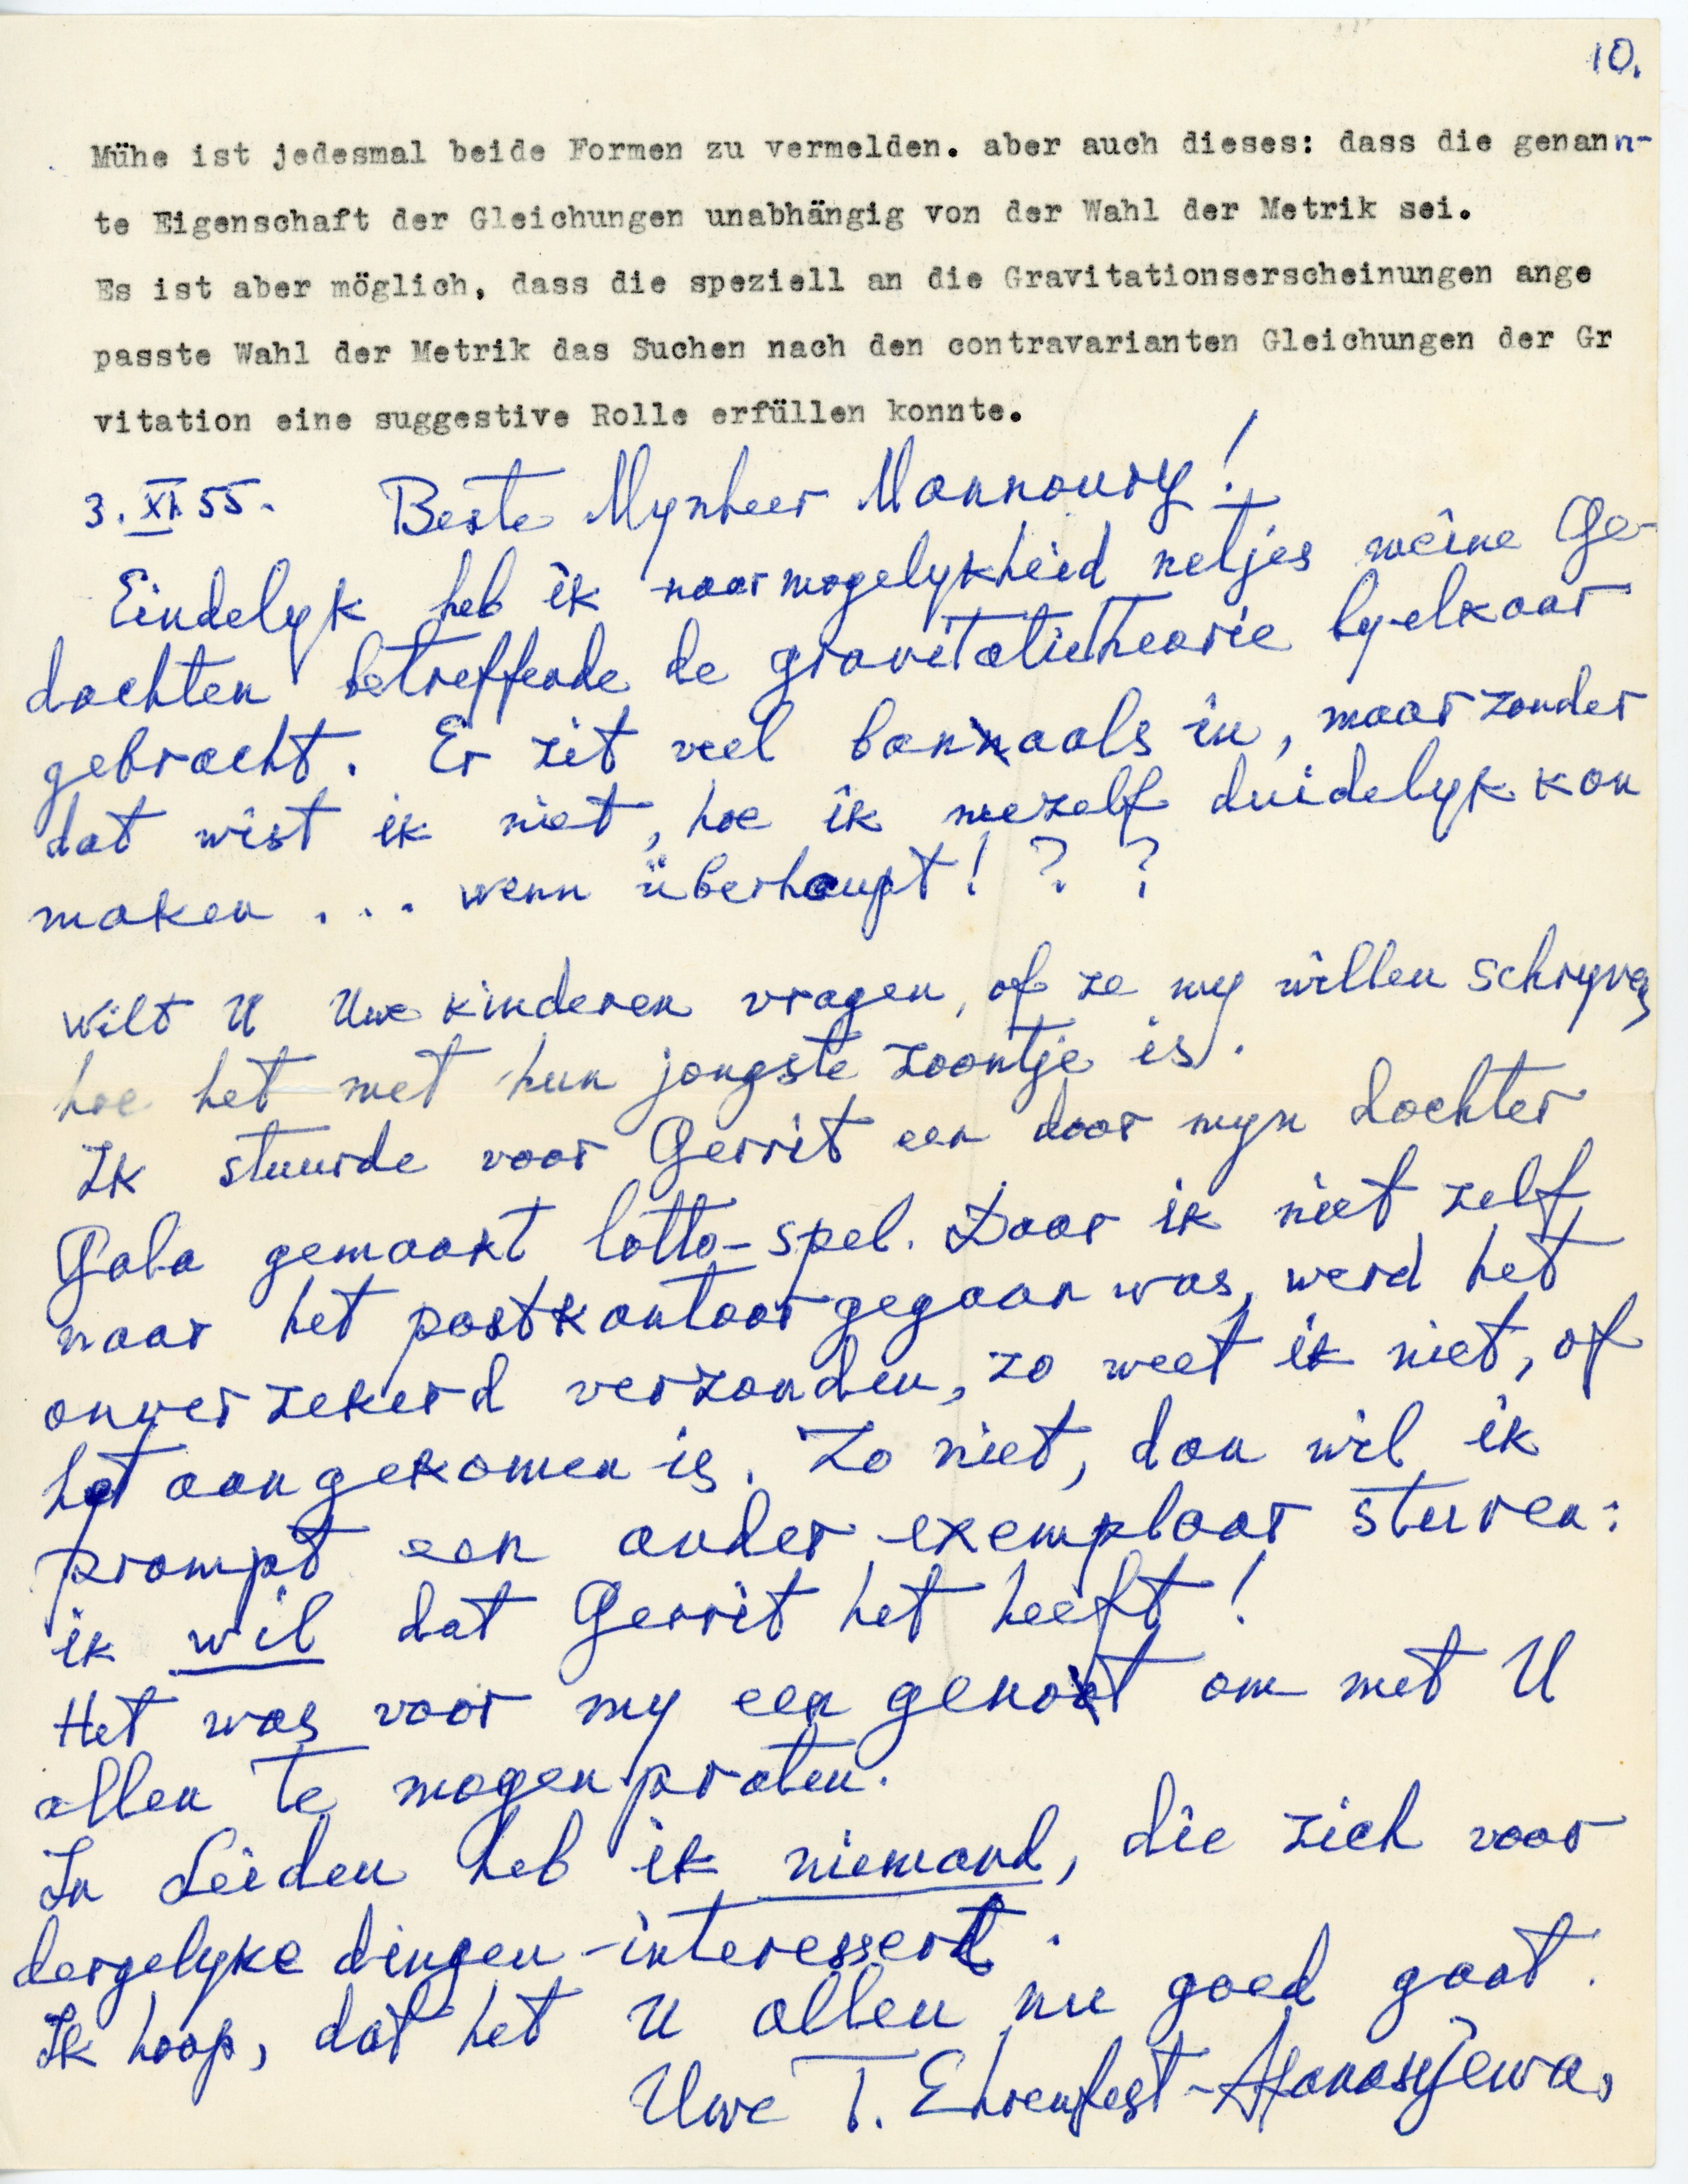 10.
Mühe ist jedesmal beide Formen zu vermelden. aber auch dieses: dass die genann-
te Eigenschaft der Gleichungen unabhängig von der Wahl der Metrik sei.
Es ist aber möglich, dass die speziell an die Gravitationserscheinungen ange
passte Wahl der Metrik das Suchen nach den contravarianten Gleichungen der Gr
vitation eine suggestive Rolle erfüllen konnte.
3. XI. 55. Beste Mynheer Mannoury!
Eindelyk heb ik naarmogelykheid netjes meine Ge-
dachten betreffende de gravitatietheorie by elkaar
gebracht. Er zit veel banaals in, maar zonder
dat wist ik niet, hoe ik mezelf duidelyk kon
maken ... wenn überhaupt! ? ?
Wilt U Uwe kinderen vragen, of ze my willen schryven,
hoe het met hun jongste zoontje is.
Ik stuurde voor Gerrit een door myn dochter
Gala gemaakt lotto-spel. Daar ik niet zelf
naar het postkantoor gegaan was, werd het
onverzekerd verzonden, zo weet ik niet, of
het aangekomen is. Zo niet, dan wil ik
prompt een ander exemplaar sturen:
ik wil dat Gerrit het heeft!
Het was voor my een genot om met U
allen te mogen praten.
In Leiden heb ik niemand, die zich voor
dergelyke dingen interessert.
Ik hoop, dat het U allen nu goed gaat.
Uwe T. Ehrenfest-Afanassjewa.